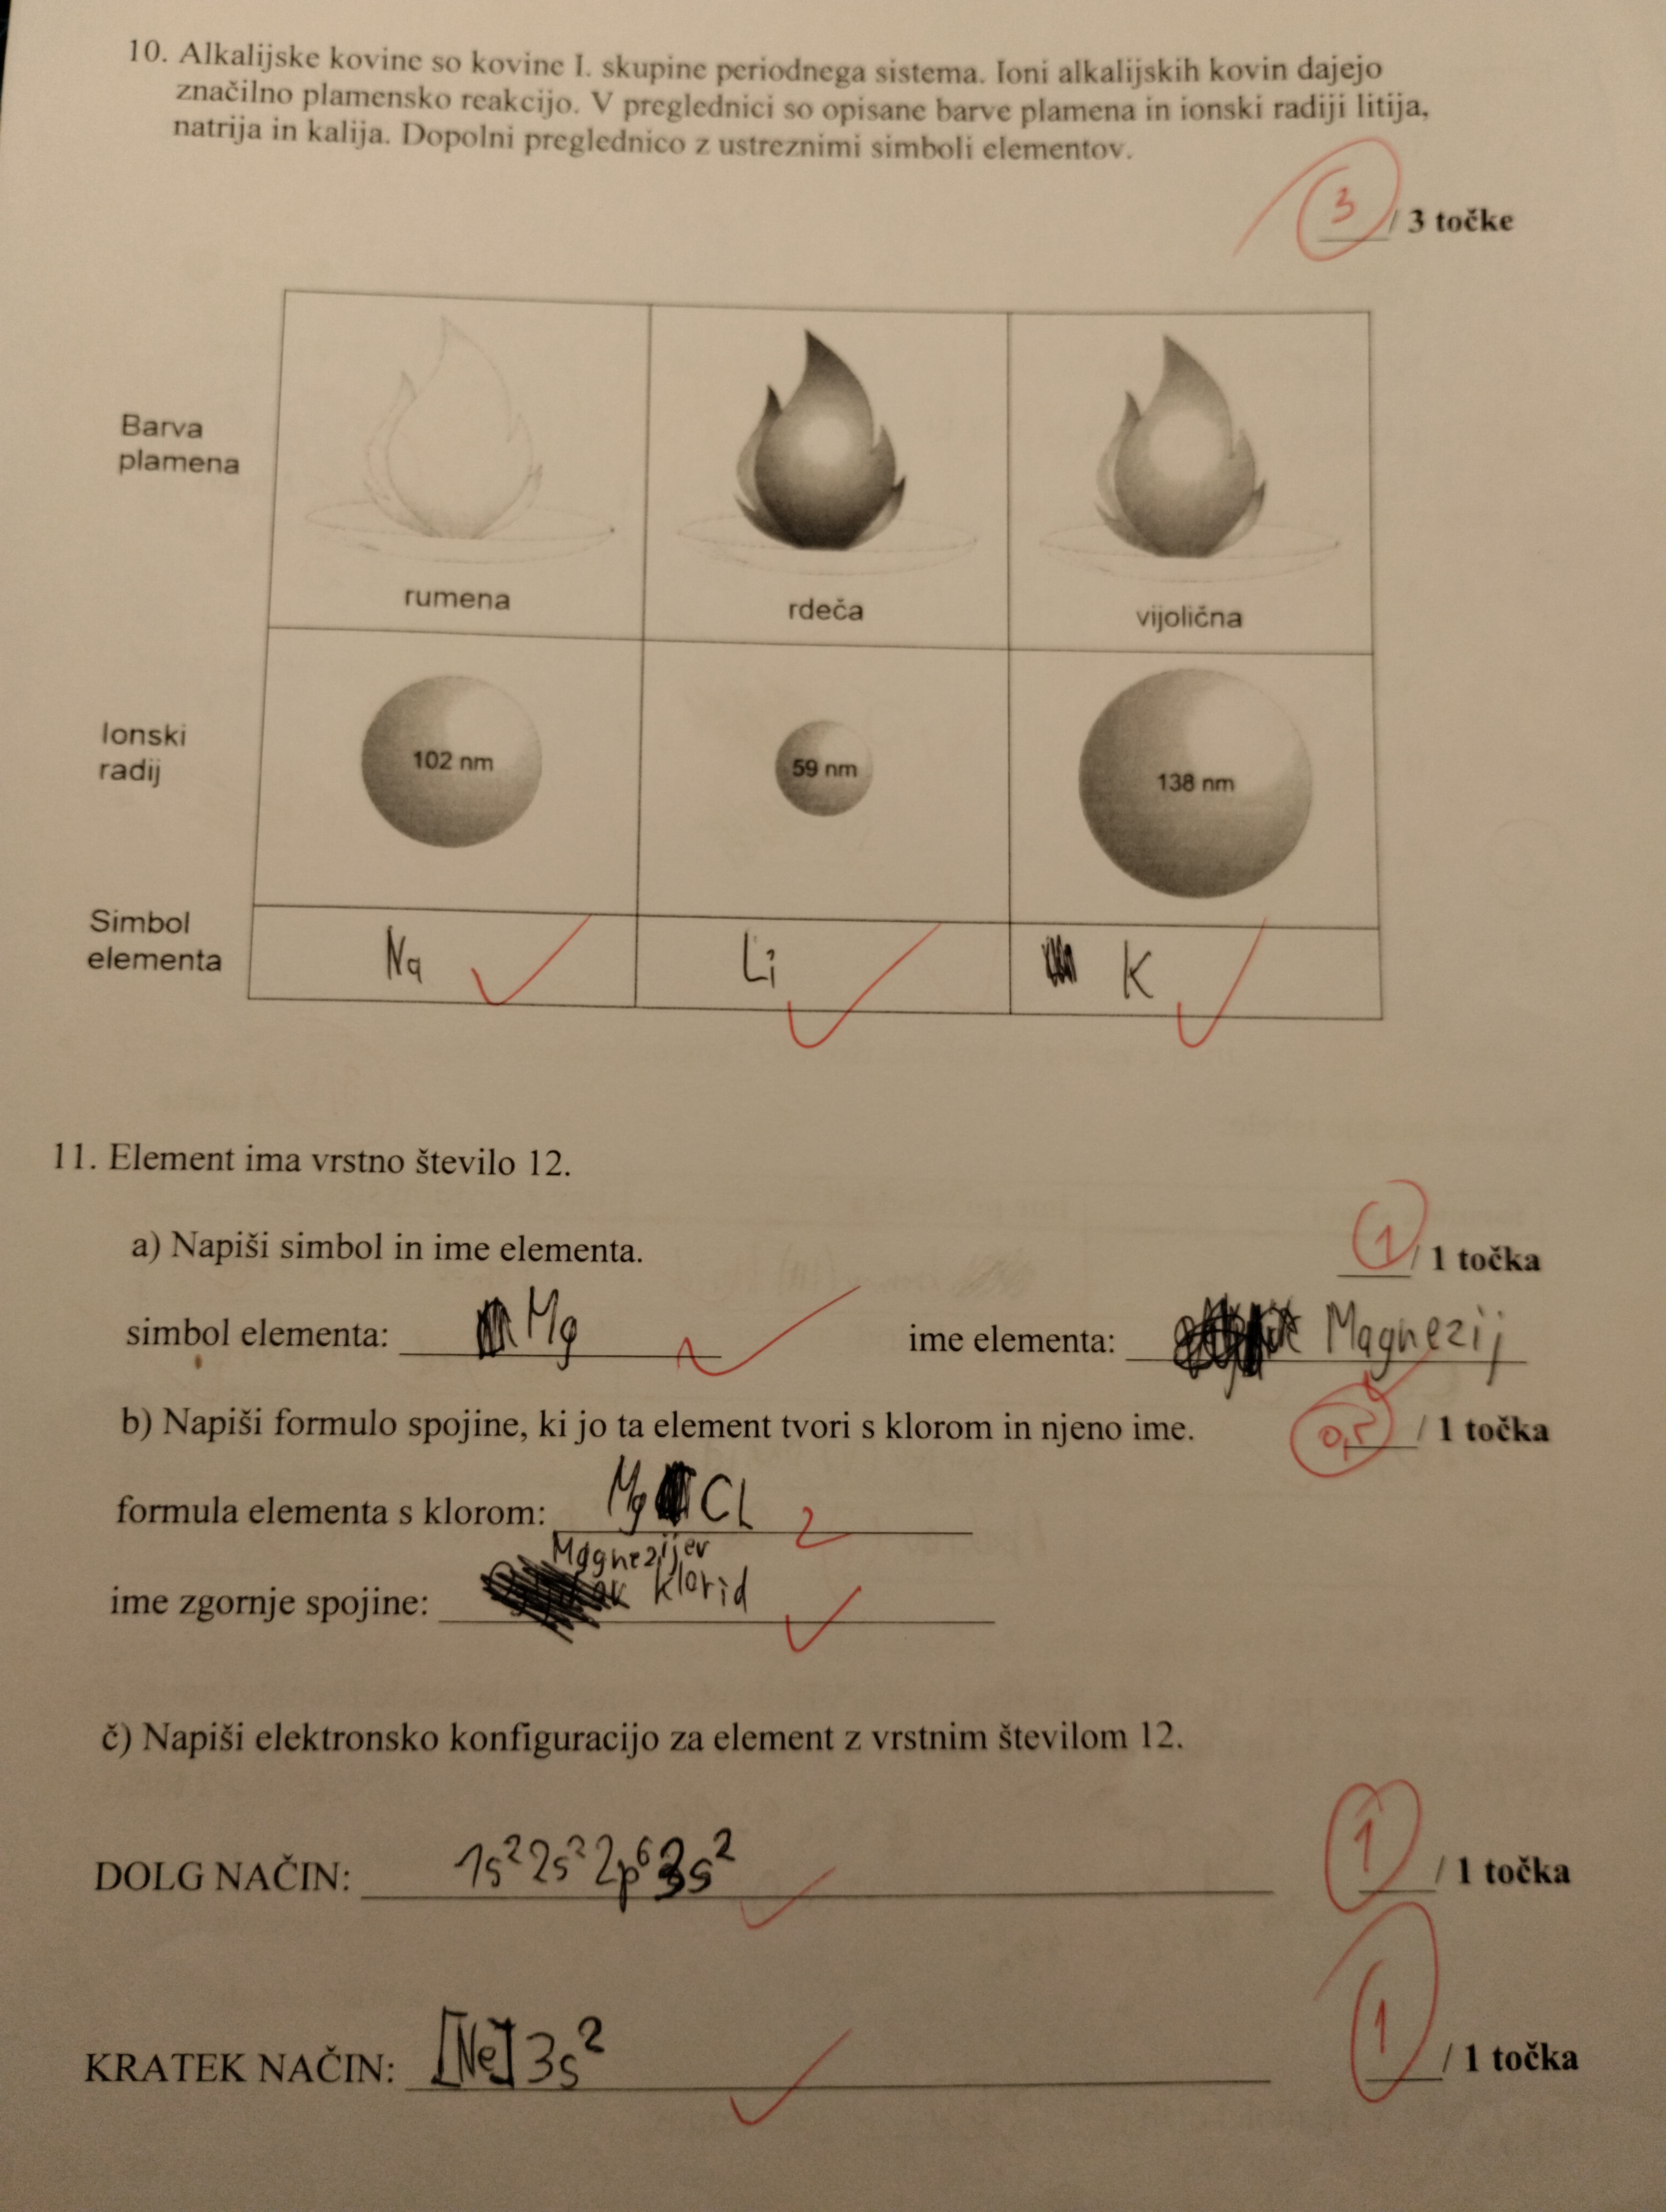 10. Alkalijske kovine so kovine I. skupine periodnega sistema. Ioni alkalijskih kovin dajejo
značilno plamensko reakcijo. V preglednici so opisane barve plamena in ionski radiji litija,
natrija in kalija. Dopolni preglednico z ustreznimi simboli elementov.
3 / 3 točke
Barva
plamena
rumena rdeča vijolična
Ionski
radij
102 nm 59 nm 138 nm
Simbol
elementa
Na Li K
11. Element ima vrstno število 12.
a) Napiši simbol in ime elementa. 1 / 1 točka
simbol elementa: Mg ime elementa: Magnezij
b) Napiši formulo spojine, ki jo ta element tvori s klorom in njeno ime. 0,5 / 1 točka
formula elementa s klorom: Mg CL 2
Magnezijev
ime zgornje spojine: klorid
č) Napiši elektronsko konfiguracijo za element z vrstnim številom 12.
DOLG NAČIN: 1s² 2s² 2p⁶ 3s² 1 / 1 točka
KRATEK NAČIN: [Ne] 3s² 1 / 1 točka